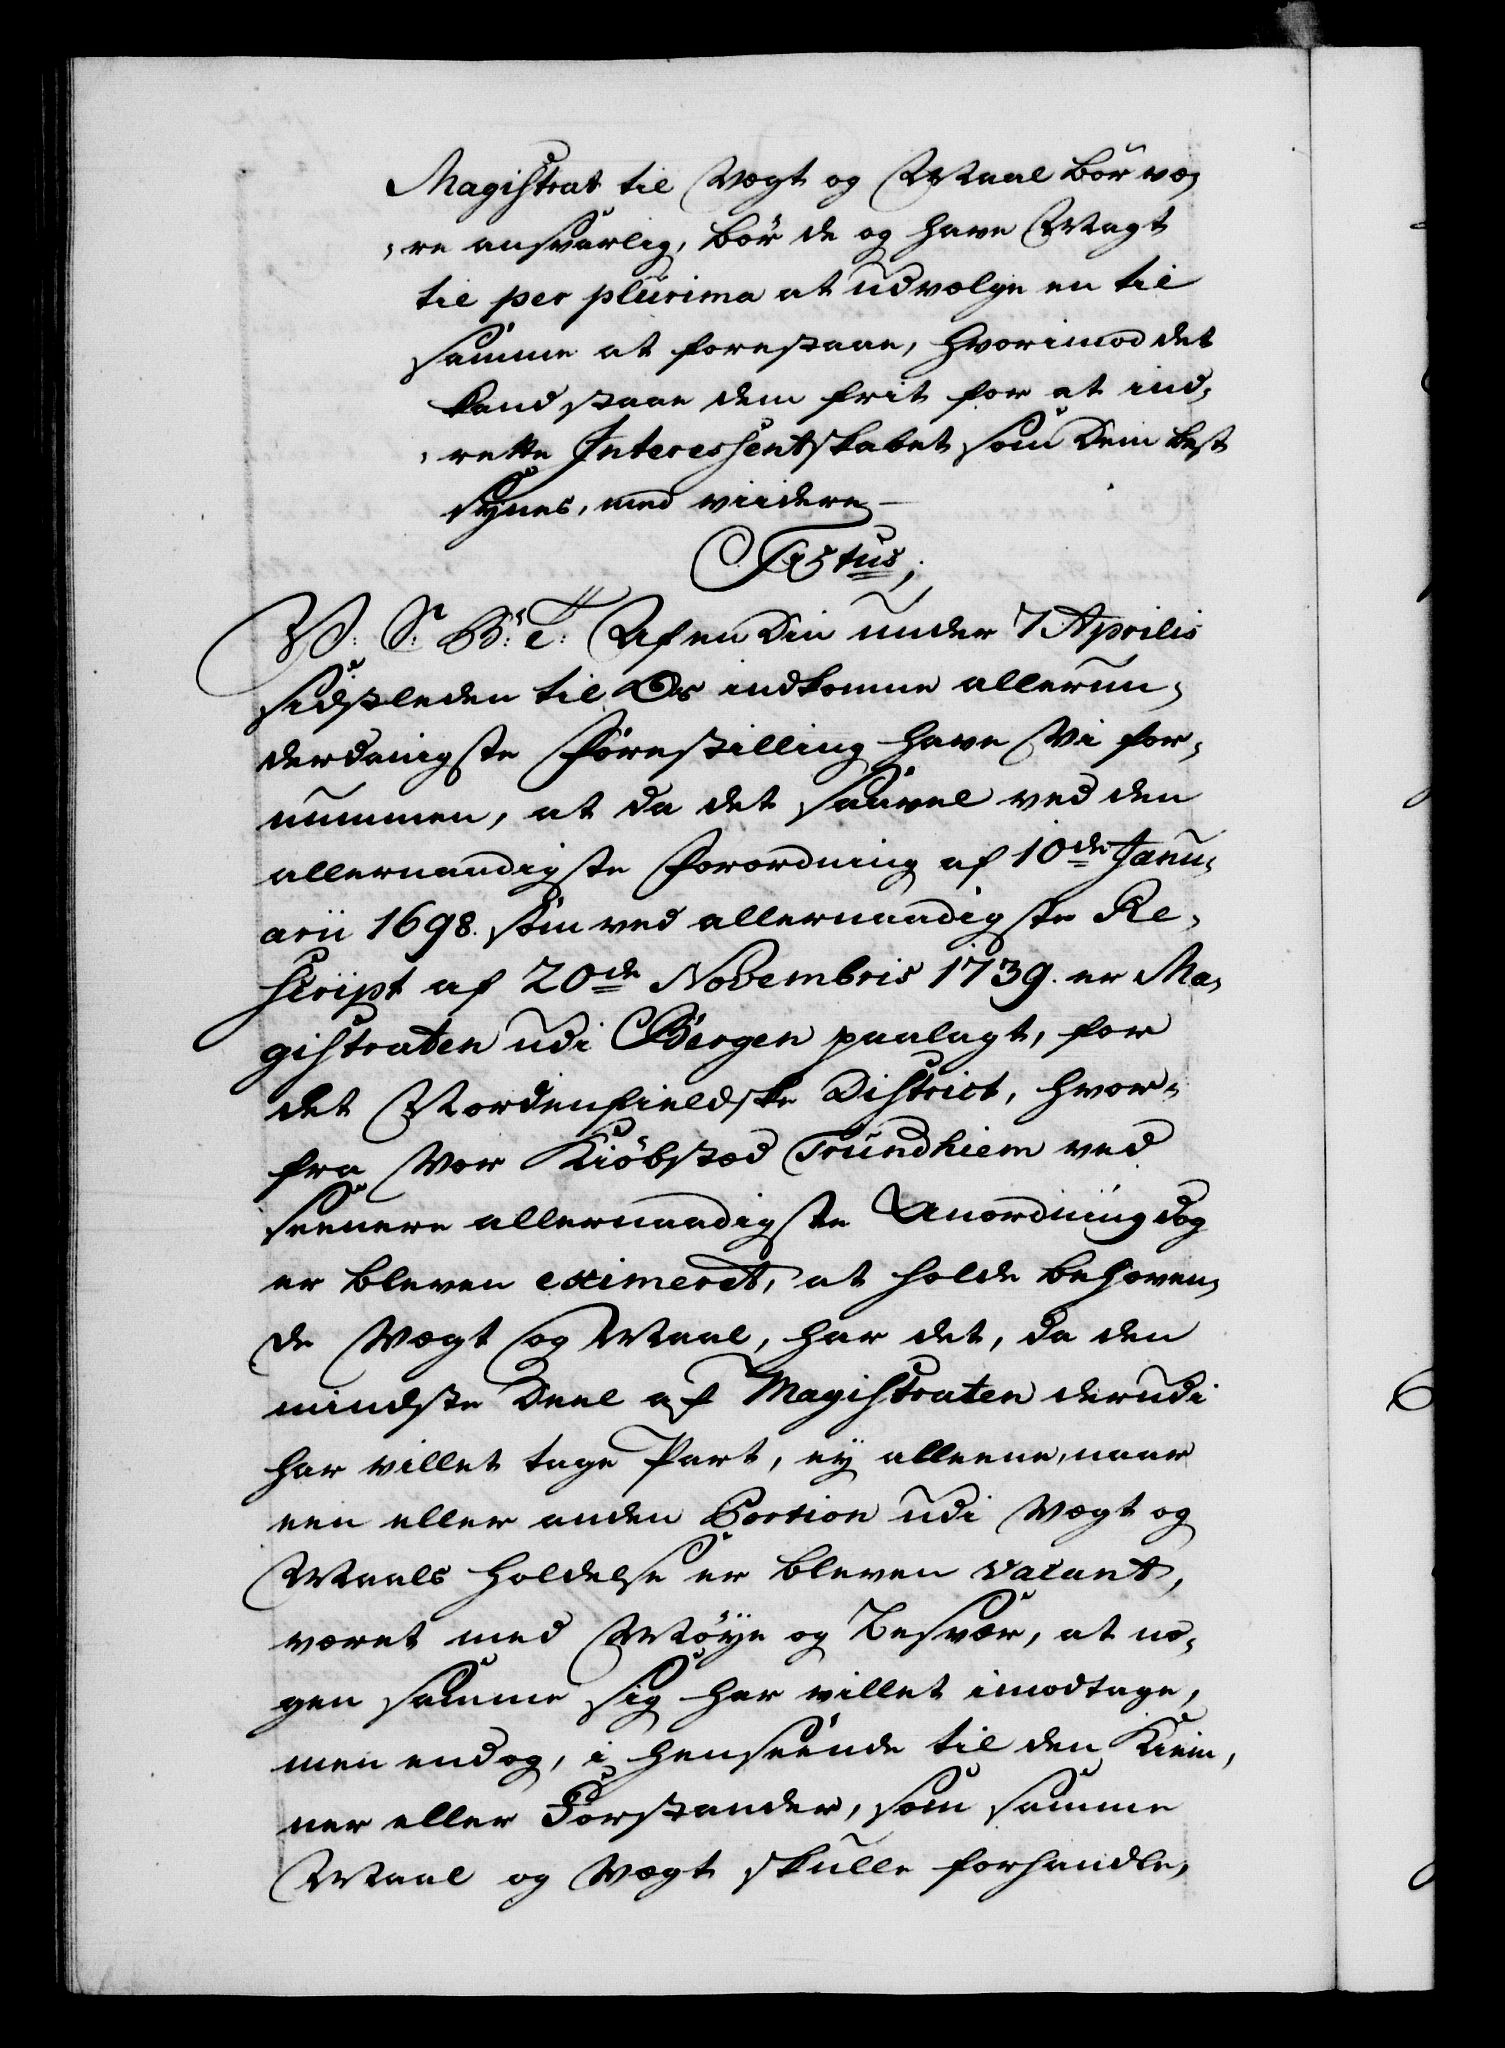 Magistrat til Vægt og Maal bör væ¬
¬re ansvarlig, bör de og have Magt
til per plurima at udvælge en til
samme at forestaae, hvorimod det
kand staae dem frit for at ind¬
¬rette Interessentskabet som dem best
synes, med viidere
Textus;
V: S: B: T: Af en Din under 7 Aprilis
sidstleden til Os indkomne allerun¬
derdanigste Forestilling have Vi for¬
nummen, at da det saavel ved den
allernaadigste Forordning af 10de Janu¬
arii 1698. som ved allernaadigste Re¬
script af 20de Novembris 1739. er Ma¬
gistraten udi Bergen paalagt, for
det Nordenfieldske District, hvor¬
fra Vor Kiöbstæd Trundhiem ved
seenere allernaadigste Anordning dog
er bleven eximeret, at holde behöven¬
de Vægt og Maal, har det, da den
mindste Deel af Magistraten derudi
har villet tage Part, ey alleene, naar
een eller anden Portion udi Vægt og
Maals holdelse er bleven vacant,
været med Möye og Besvær, at no¬
gen samme sig har villet imodtage,
men endog, i henseende til den Kiem¬
ner eller Forstander, som samme
Maal og Vægt skulle forhandle,